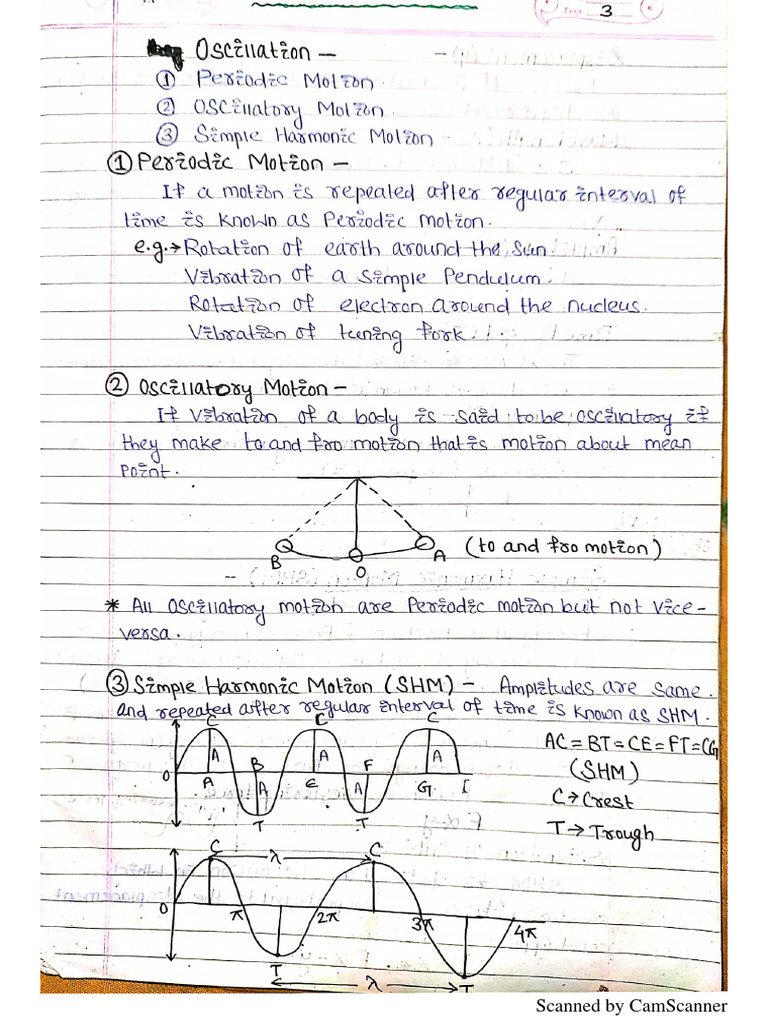 3
Oscillation –
① Periodic Motion
② Oscillatory Motion.
③ Simple Harmonic Motion
① Periodic Motion –
If a motion is repeated after regular interval of
time is known as Periodic motion.
e.g.→ Rotation of earth around the Sun
Vibration of a simple Pendulum.
Rotation of electron around the nucleus.
Vibration of tuning fork.
② Oscillatory Motion –
If Vibration of a body is said to be oscillatory if
they make to and fro motion that is motion about mean
point.
B O A (to and fro motion)
* All oscillatory motion are Periodic motion but not vice-
versa.
③ Simple Harmonic Motion (SHM) – Amplitudes are same.
and repeated after regular interval of time is known as SHM.
C C C
AC = BT = CE = FT = CG
(SHM)
C → Crest
T → Trough
O A A B A A E F A A G I
T T
C λ C
O π 2π 3π 4π
T λ T
Scanned by CamScanner